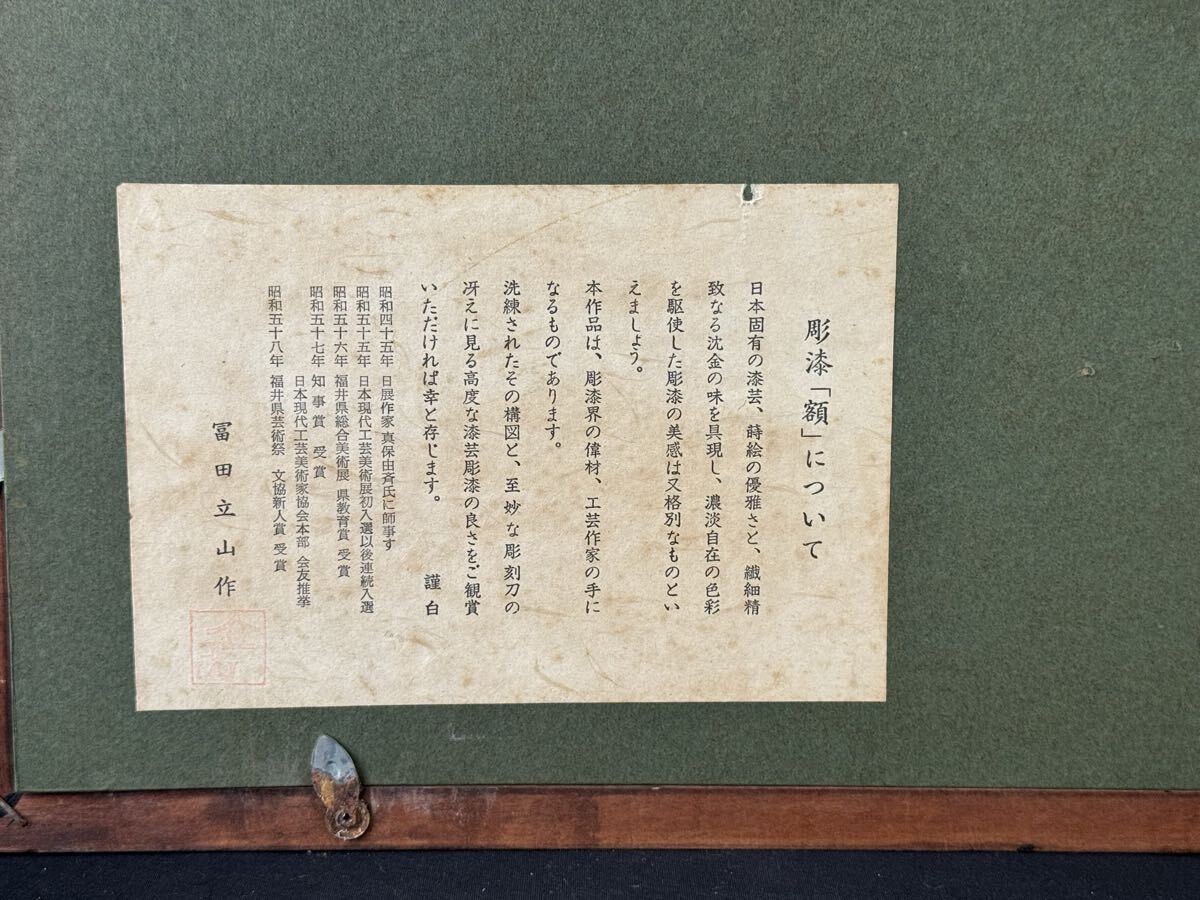 彫漆「額」について
日本固有の漆芸、蒔絵の優雅さと、繊細精
致なる沈金の味を具現し、濃淡自在の色彩
を駆使した彫漆の美感は又格別なものとい
えましょう。
本作品は、彫漆界の偉材、工芸作家の手に
なるものであります。
洗練されたその構図と、至妙な彫刻刀の
冴えに見る高度な漆芸彫漆の良さをご観賞
いただければ幸と存じます。 謹白
昭和四十五年 日展作家 真保由斉氏に師事す
昭和五十五年 日本現代工芸美術展初入選以後連続入選
昭和五十六年 福井県総合美術展 県教育賞 受賞
昭和五十七年 知事賞 受賞
日本現代工芸美術家協会本部 会友推挙
昭和五十八年 福井県芸術祭 文協新人賞 受賞
冨田立山作